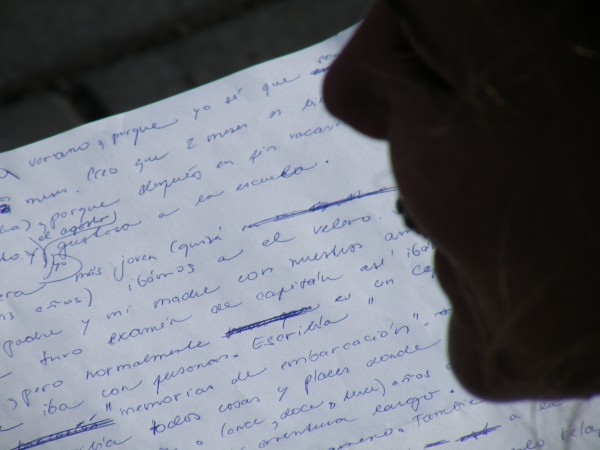 verano, porque yo sé que
mes. Creo que 2 meses es
, porque después en fin vacasi
y gustosa a la escuela.
el agosto)
yo
era más joven (quizá
años) ibámos a el velero.
padre y mi madre con nuestros am
tuvo examén de capitán así iba
, pero normalmente es un ca
iba con personas. Escribía "
"memorias de embarcación".
bía todos cosas y places donde
(once, doce, trece) años
aventura largo.
También
a la